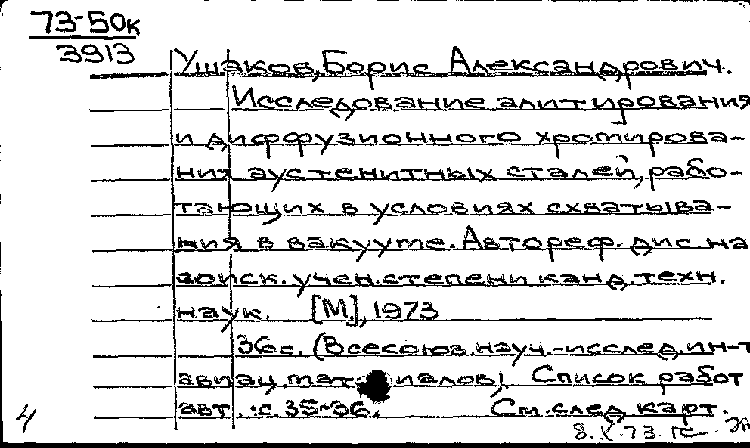 73-50к
3913
Ушаков, Борис Александрович.
Исследование алитирования
и диффузионного хромирова-
ния аустенитных сталей, рабо-
тающих в условиях схватыва-
ния в вакууме. Автореф. дис. на
соиск. учен. степени канд. техн.
наук. [М], 1973
36 с. (Всесоюз. науч.-исслед. ин-т
авиац. материалов). Список работ
авт.: с 35-36. См. след. карт.
4
8.X 73.